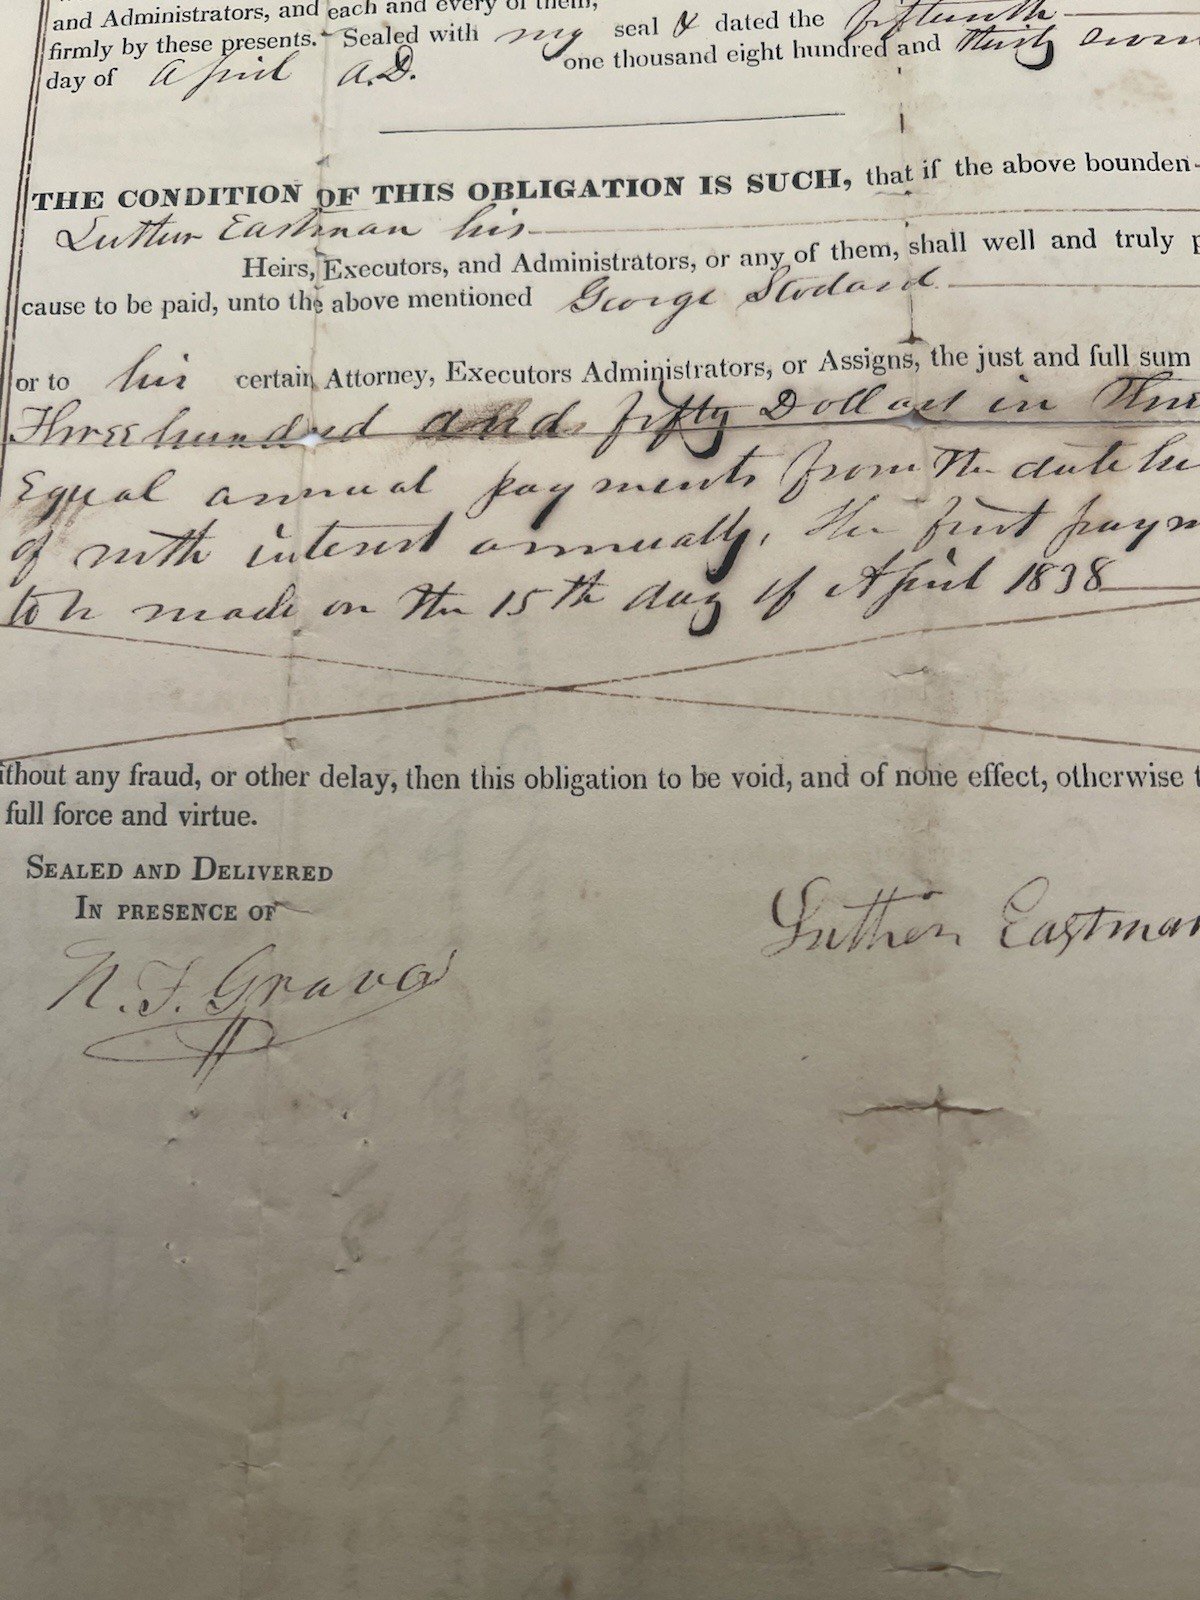 and Administrators, and each and every of them,
firmly by these presents. Sealed with my seal & dated the fifteenth
day of April A.D. one thousand eight hundred and thirty seven
THE CONDITION OF THIS OBLIGATION IS SUCH, that if the above bounden
Luther Eastman his
Heirs, Executors, and Administrators, or any of them, shall well and truly p
cause to be paid, unto the above mentioned George Stodard
or to his certain Attorney, Executors Administrators, or Assigns, the just and full sum
Three hundred and fifty Dollars in Three
Equal annual payments from the date he
of with interest annually, the first paym
to be made on the 15th day of April 1838
ithout any fraud, or other delay, then this obligation to be void, and of none effect, otherwise t
full force and virtue.
SEALED AND DELIVERED
IN PRESENCE OF
N. F. Graves
Luther Eastman